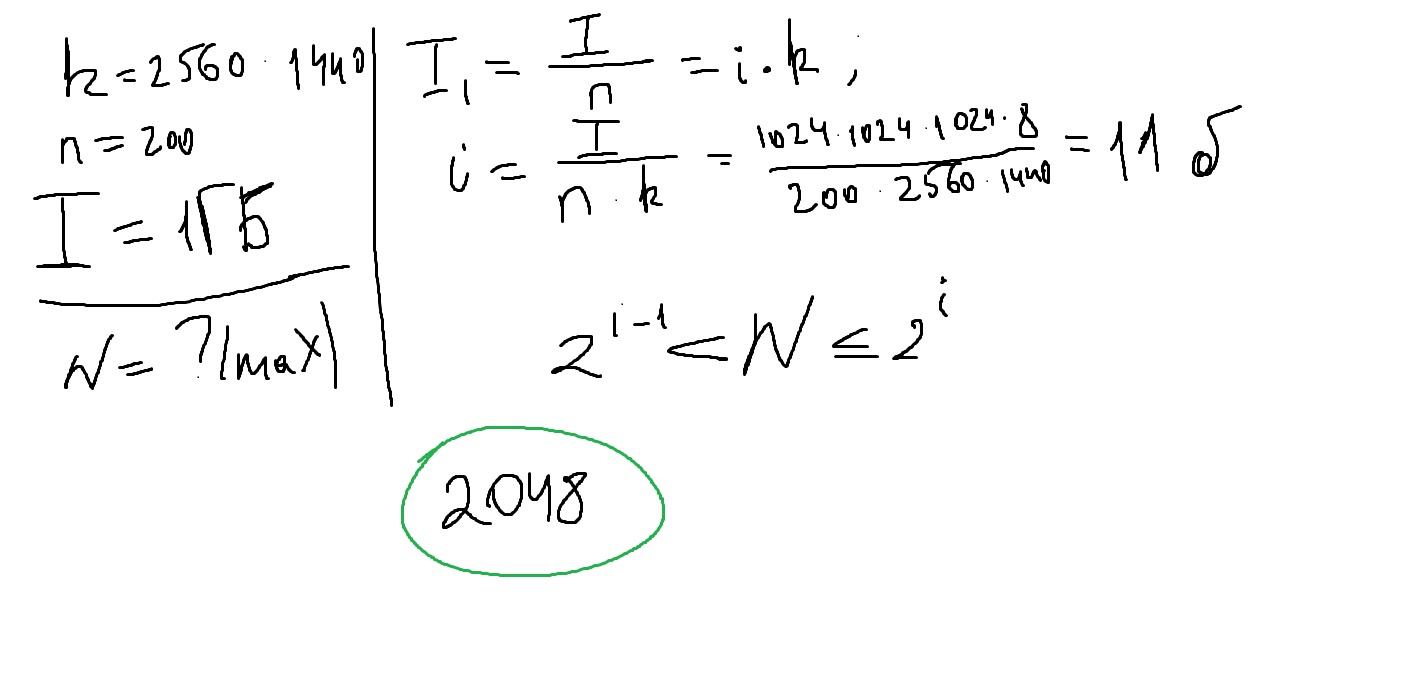 k = 2560 · 1440
n = 200
I = 1ГБ
N = ? |max|
I₁ = I/n = i · k ,
i = I/(n · k) = (1024 · 1024 · 1024 · 8)/(200 · 2560 · 1440) = 11 б
2^(i-1) < N ≤ 2^i
2048